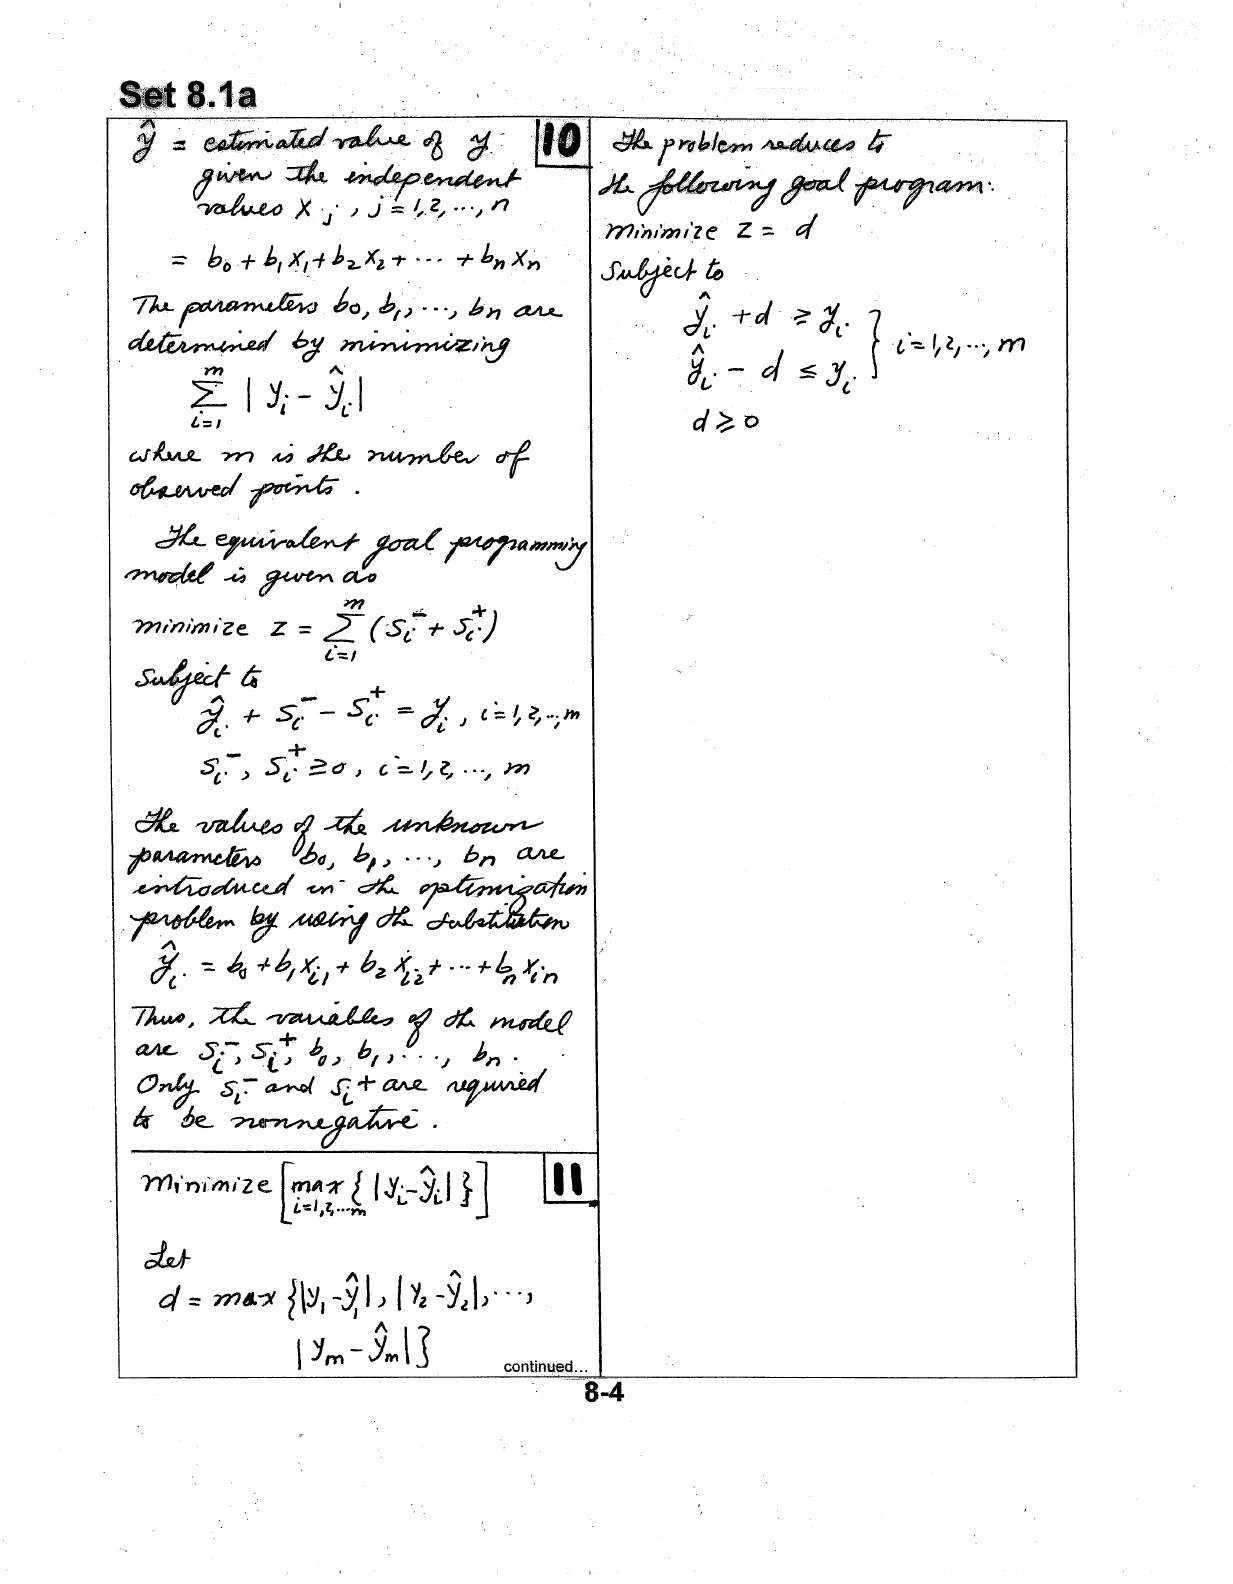 Set 8.1a
ŷ = estimated value of y 10
given the independent
values xj , j = 1, 2, ..., n
= b0 + b1 x1 + b2 x2 + ... + bn xn
The parameters b0, b1, ..., bn are
determined by minimizing
m
Σ | yi - ŷi |
i=1
where m is the number of
observed points .
The equivalent goal programming
model is given as
m
minimize z = Σ (si⁻ + si⁺)
i=1
Subject to
ŷi + si⁻ - si⁺ = yi , i=1,2,..,m
si⁻ , si⁺ ≥ 0 , i = 1, 2, ..., m
The values of the unknown
parameters b0, b1, ..., bn are
introduced in the optimization
problem by using the substitution
ŷi = b0 + b1 xi1 + b2 xi2 + ... + bn xin
Thus, the variables of the model
are si⁻, si⁺, b0, b1, ..., bn .
Only si⁻ and si⁺ are required
to be nonnegative .
minimize [ max { | yi - ŷi | } ] 11
i=1,2,...m
Let
d = max { |y1 - ŷ1| , | y2 - ŷ2|, ...,
| ym - ŷm | }
continued...
The problem reduces to
the following goal program:
minimize z = d
Subject to
ŷi + d ≥ yi
ŷi - d ≤ yi } i = 1, 2, ..., m
d ≥ 0
8-4